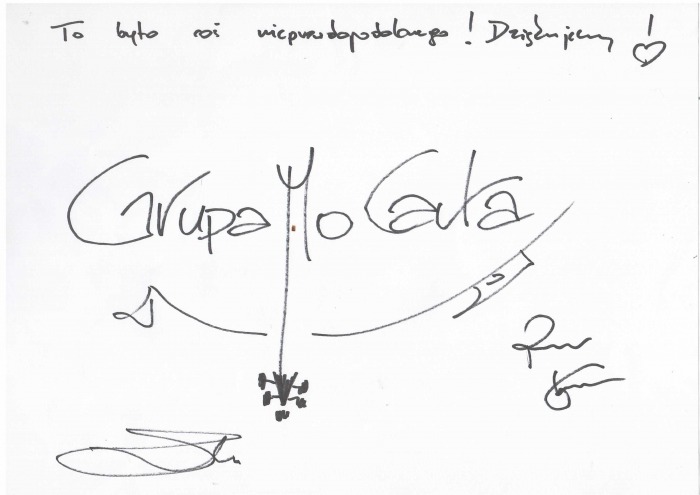 To było coś nieprawdopodobnego! Dziękujemy!
Grupa MoCarta